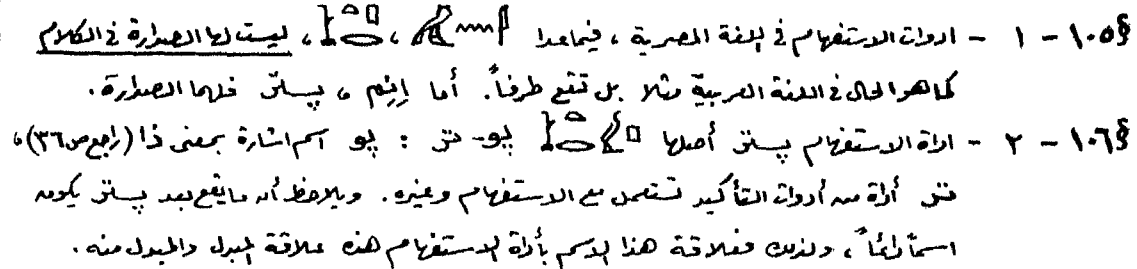 §١٠٥ - ١ - ادوات الاستفهام في اللغة المصرية ، فيما عدا ، ليست لها الصدارة في الكلام
كما هو الحال في اللغة العربية مثلا بل تقع طرفاً. أما إنِم ، پستر فلهما الصدارة.
§١٠٦ - ٢ - اداة الاستفهام پستر أصلها پو- تر : پو اسم اشارة بمعنى ذا (راجع ص ٣٦)،
تر أداة من أدوات التأكيد تستعمل مع الاستفهام وغيره. ويلاحظ أن ما يقع بعد پستر يكون
اسماً دائماً ، ولذلك فعلاقة هذا الاسم بأداة الاستفهام هذه علاقة المبدل والمبدل منه .